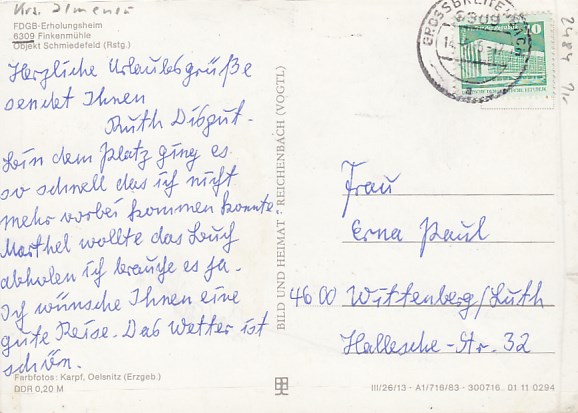 Krs. Ilmenau
FDGB-Erholungsheim
6309 Finkenmühle
Objekt Schmiedefeld (Rstg.)
Herzliche Urlaubsgrüße
sendet Ihnen
Ruth Disgut.
Bin dem Platz ging es
so schnell das ich nicht
mehr vorbei kommen konnte
Marthel wollte das Buch
abholen ich brauche es ja.
Ich wünsche Ihnen eine
gute Reise. Das Wetter ist
schön.
Farbfotos: Karpf, Oelsnitz (Erzgeb.)
DDR 0,20 M
BILD UND HEIMAT REICHENBACH (VOGTL)
GROSSBREITENBACH
6309
a
10
2484
Frau
Erna Paul
4600 Wittenberg/Luth
Hallesche-Str. 32
III/26/13 - A1/716/83 - 300716 01 11 0294